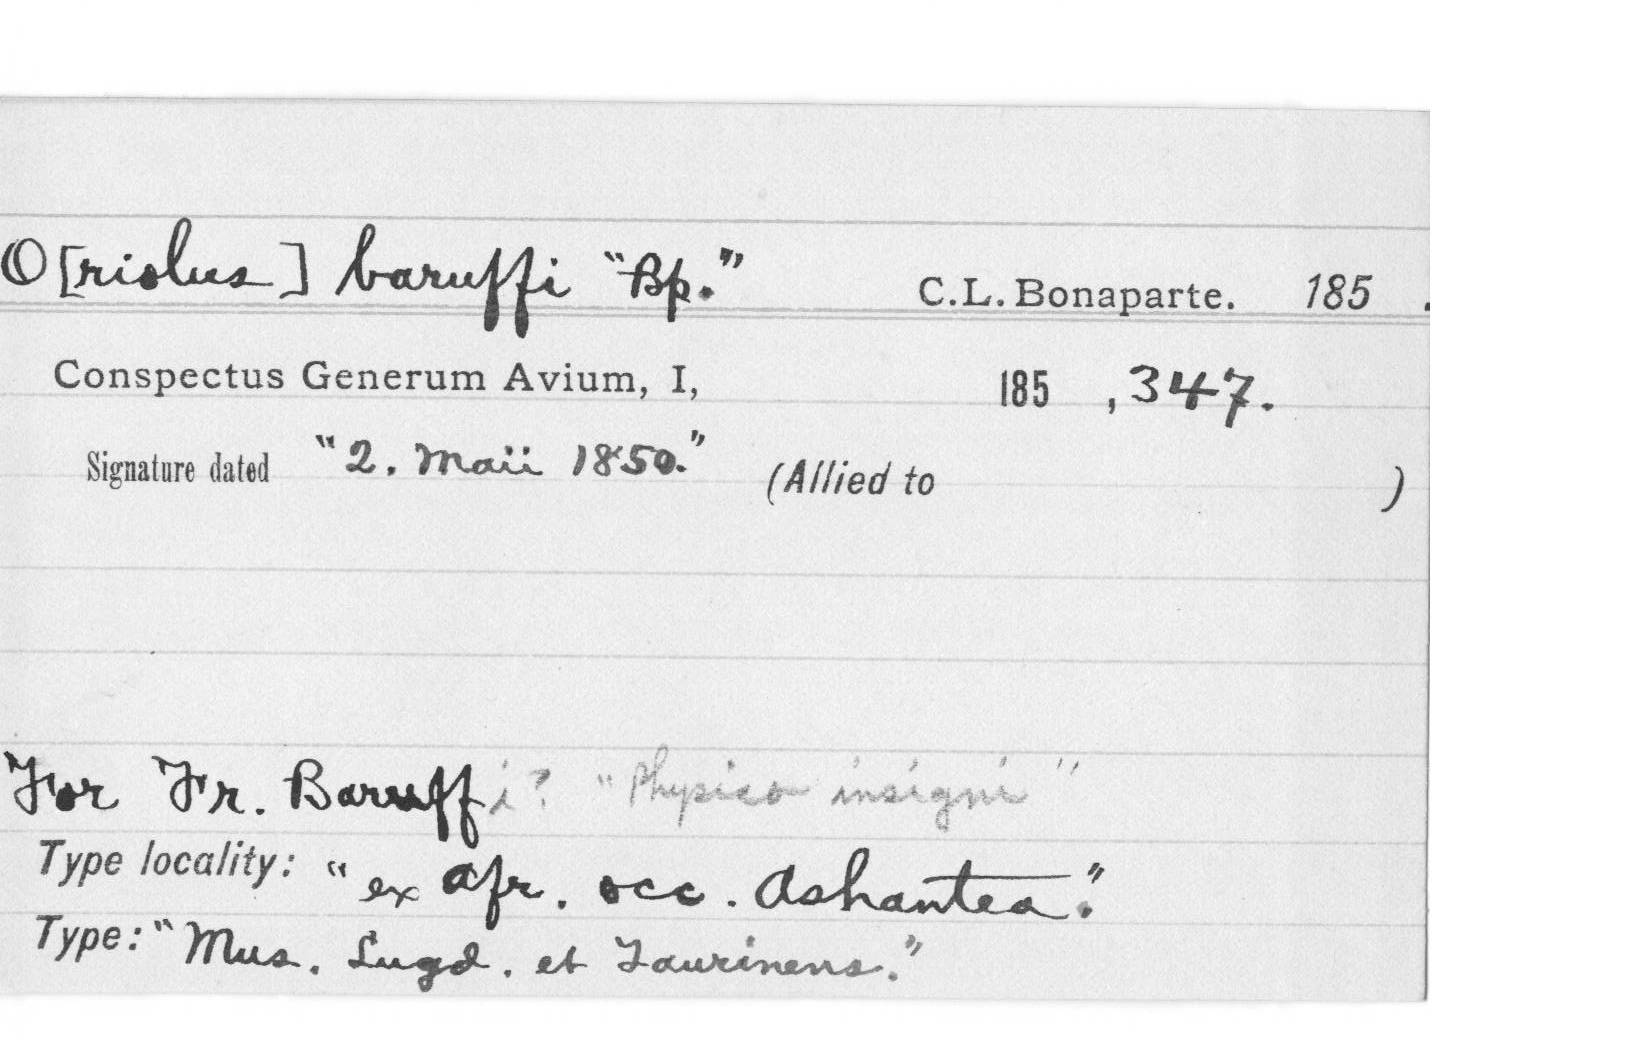 O[riolus] baruffi "Bp." C.L. Bonaparte. 185 .
Conspectus Generum Avium, I, 185 , 347.
Signature dated "2. Maii 1850." (Allied to )
For Fr. Baruffi? "Physico insigni"
Type locality: "ex Afr. occ. Ashantea."
Type: "Mus. Lugd. et Taurinens."